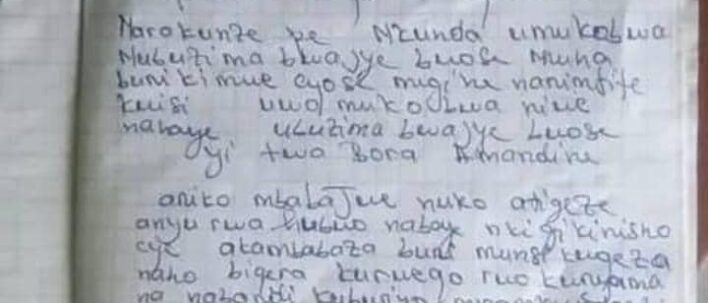 Narokunze pe Nkunda umukobwa
Mubuzima bwajye bwose Muha
buri kimwe cyose mugihe nanimfite
kwisi uwo mukobwa niwe
nabaye ubuzima bwajye bwose
yi twa Bora Amandine
ariko mbabajwe nuko atigeze
anyu rwa hubwo nabaye nkigikinisho
cye akambabaza buri munsi kugeza
naho bigera kurwego rwo kuryama
na nabandi